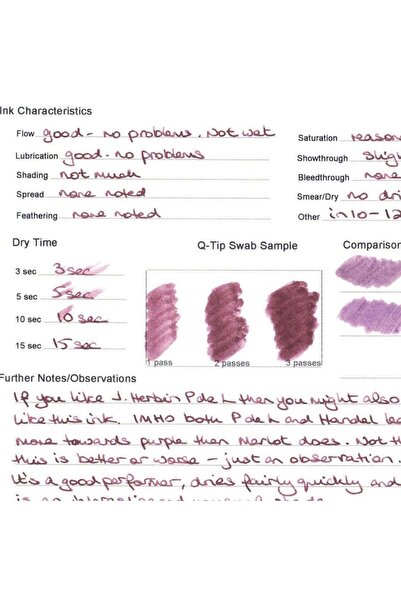 Ink Characteristics
Flow good - no problems. Not wet
Saturation
Lubrication good - no problems
Showthrough
Shading not much
Bleedthrough none
Spread none noted
Smear/Dry no
Feathering none noted
Other in 10-12
Dry Time
Q-Tip Swab Sample
Comparison
3 sec 3 sec
5 sec 5 sec
10 sec 10 sec
15 sec 15 sec
1 pass
2 passes
3 passes
Further Notes/Observations
If you like J. Herbin P de L then you might also
like this ink. IMHO both P de L and Handel
more towards purple than Merlot does. Not
this is better or worse - just an observation.
It's a good performer, dries fairly quickly and